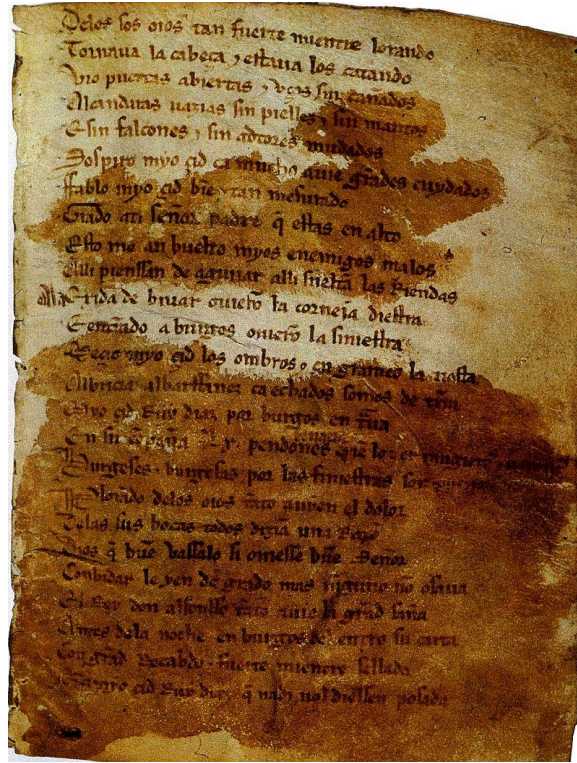 Delos sos oios tan fuerte mientre lorando
Tornaua la cabeça ⁊ estaua los catando
Vio puertas abiertas ⁊ vços sin cañados
Alcandaras uazias sin pielles ⁊ sin mantos
E sin falcones ⁊ sin adtores mudados
Sospiro myo çid ca mucho auie grãdes cuydados
Ffablo myo çid biẽ ⁊ tan mesurado
Grado ati señor padre q̃ estas en alto
Esto me an buelto myos enemigos malos
Alli pienssan de aguiiar alli sueltã las Riendas
Ala Exida de biuar ouierõ la corneja diestra
E entrãdo a burgos ouierõ la siniestra
Meçio myo çid los ombros ⁊ en grameo la tiesta
Albricia albarffanez ca echados somos de tr̃ra
Myo çid Ruy diaz por burgos en traua
En su cõpaña .Lx. pendones
Burgeses ⁊ burgesas por las finiestras son
Plorãdo delos oios tãto auyen el dolor
Delas sus bocas todos diziã una Razõ
Dios q̃ buẽ vassalo si ouiesse buẽ Señor
Conbidar le yen de grado mas ninguno nõ osaua
El Rey don alfonsso tãto auie la grãd saña
Antes dela noche en burgos del entro su carta
Con grãd Recabdo ⁊ fuerte mientre sellada
çid Ruy diaz q̃ nadi nol diessen posada